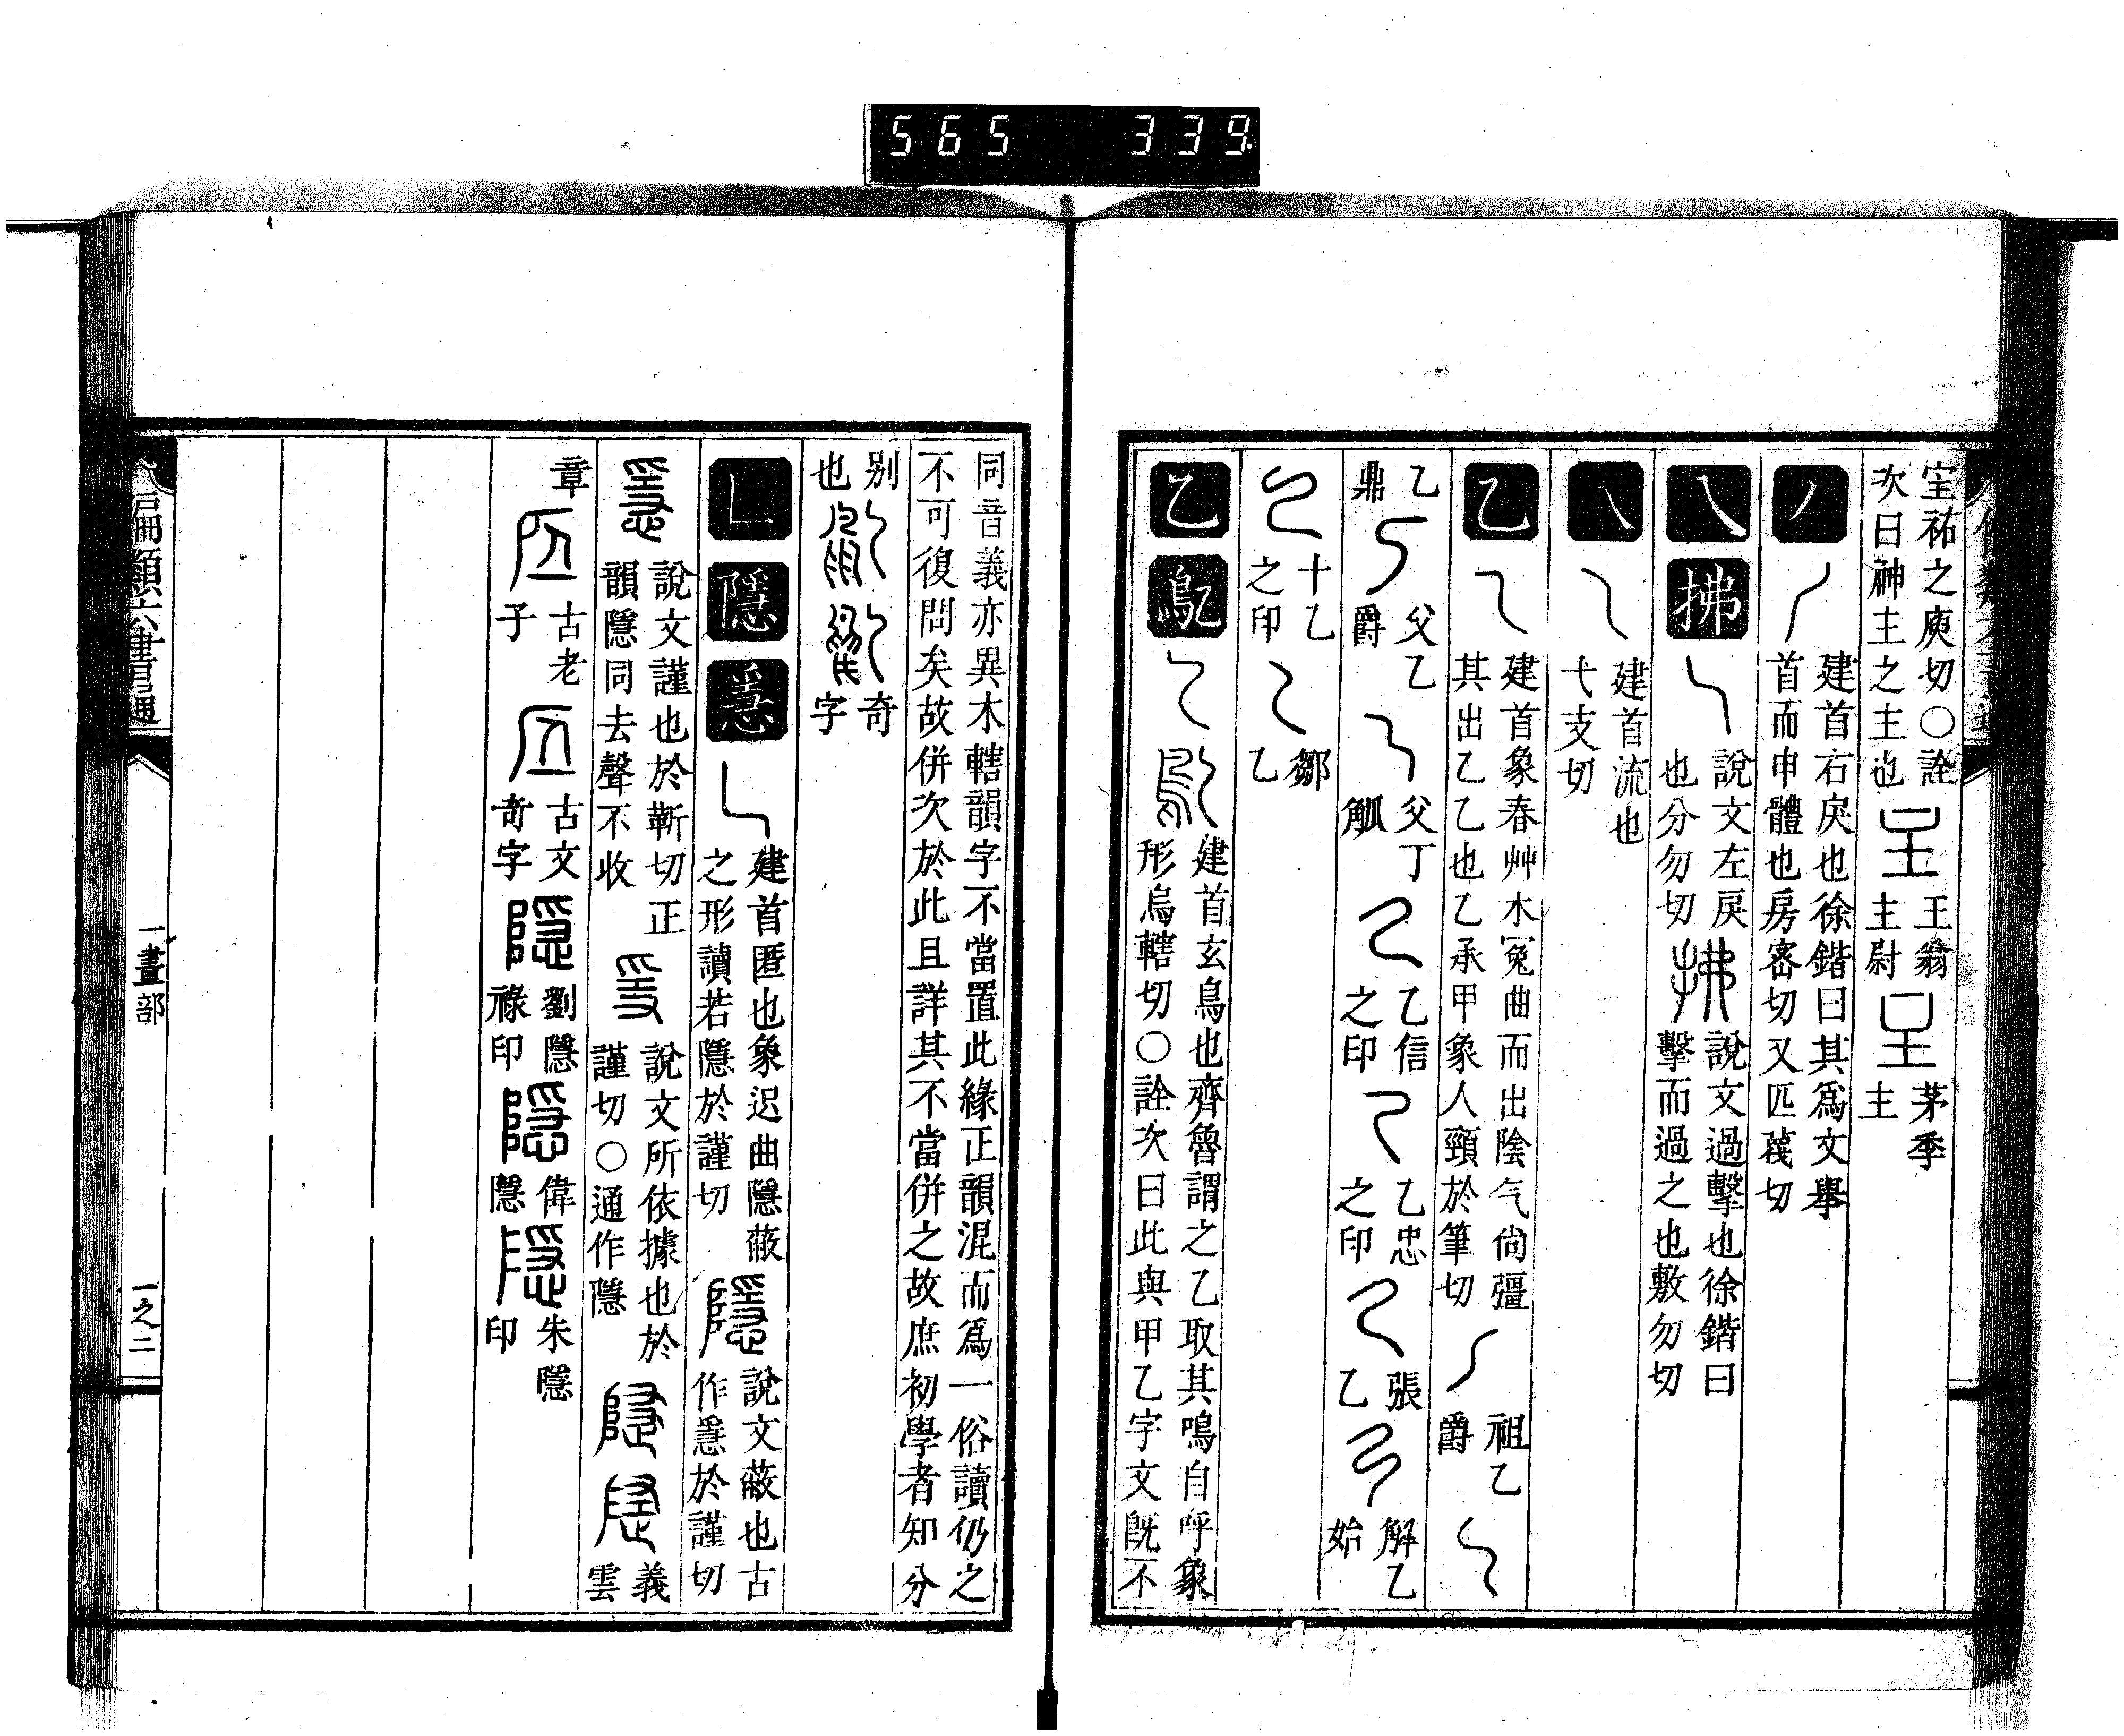 565 339
宔祏之庾切〇詮
次曰神主之主也
王翁
主主尉
茅季
主
丿
建首右戾也徐鍇曰其爲文舉
首而申體也房密切又匹蔑切
乀拂
說文左戾
也分勿切
說文過擊也徐鍇曰
擊而過之也敷勿切
乁
建首流也
弋支切
乙
建首象春艸木冤曲而出陰气尚彊
其出乙乙也乙承甲象人頸於筆切
祖乙
爵
乙
鼎
父乙
爵
父丁
觚
乙信
之印
乙忠
之印
張
乙
解乙
始
十乙
之印
鄒
乙
乙鳦
建首玄鳥也齊魯謂之乙取其鳴自呼象
形烏轄切〇詮次曰此與甲乙字文旣不
同音義亦異木轄韻字不當置此緣正韻混而爲一俗讀仍之
不可復問矣故併次於此且詳其不當併之故庶初學者知分
别
也
奇
字
乚隱㥯
建首匿也象迟曲隱蔽
之形讀若隱於謹切
說文蔽也古
作㥯於謹切
說文謹也於靳切正
韻隱同去聲不收
說文所依據也於
謹切〇通作隱
義
雲
章
古老
子
古文
奇字
劉隱
祿印
偉
隱
朱隱
印
偏類六書通
一畫部
一之二